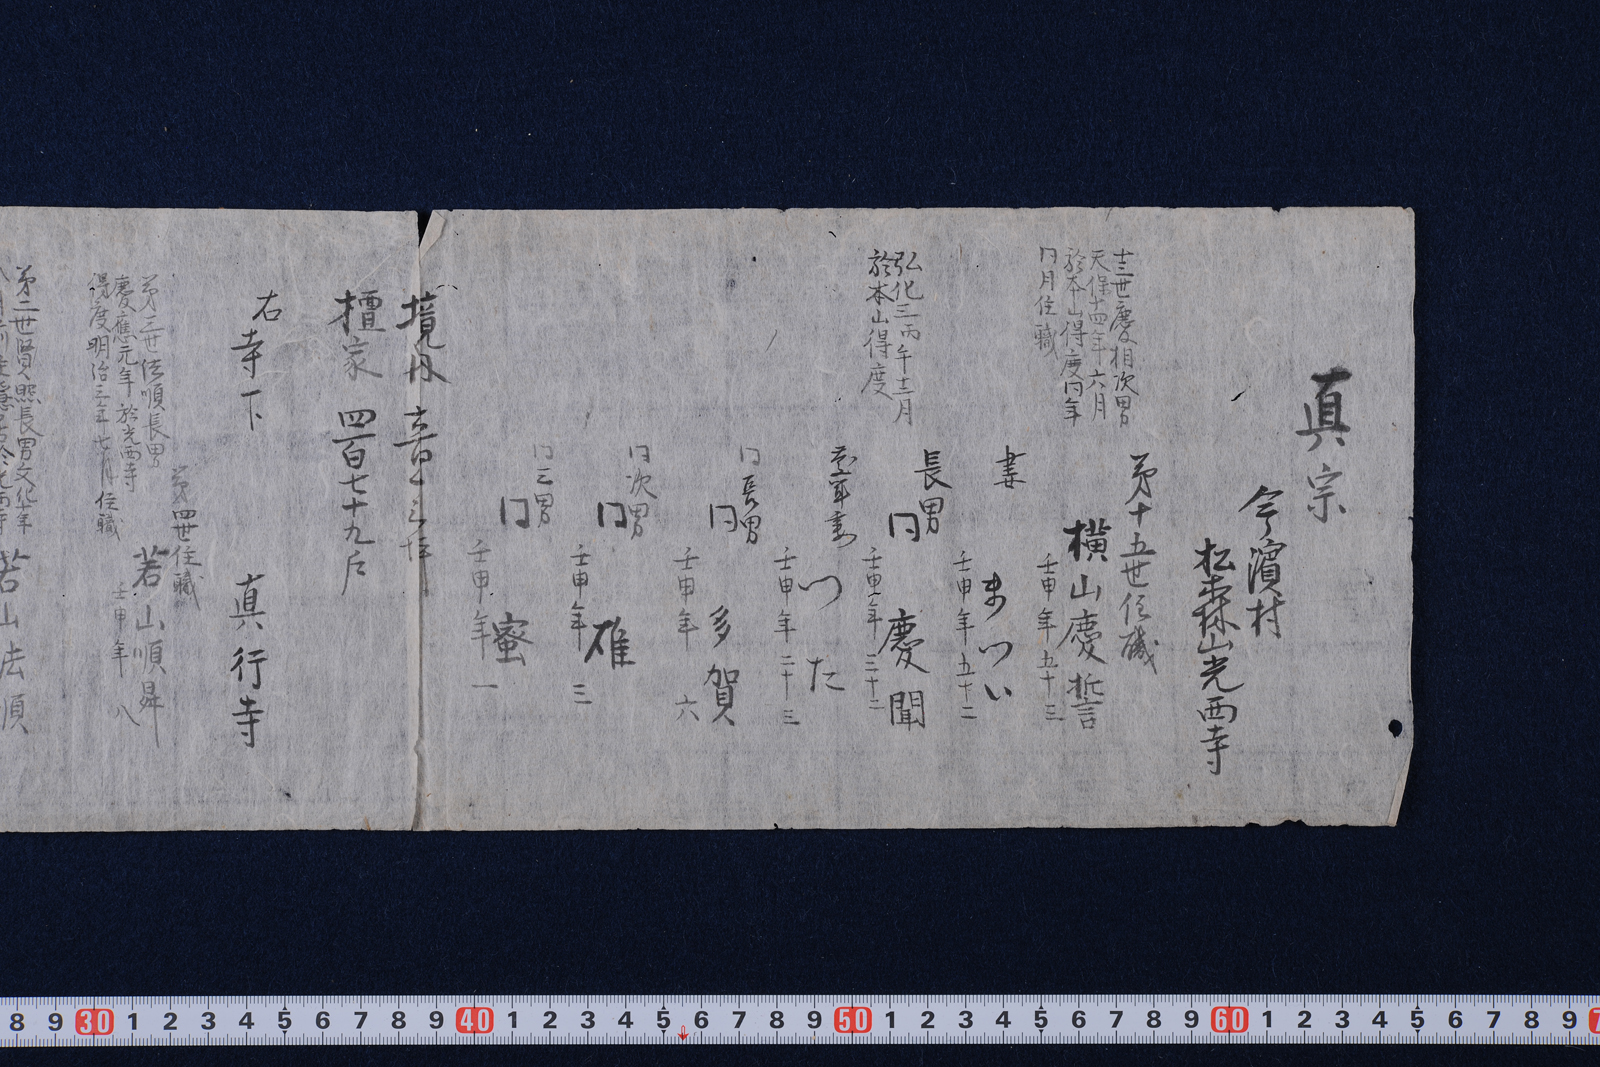 真宗
今濱村
松森山光西寺
十三世慶相次男
天保十四年六月
於本山得度同年
同月住職
第十五世住職
横山慶誓
壬申年五十三
妻
まつい
壬申年五十二
弘化三丙午十二月
於本山得度
長男
同 慶聞
壬申年三十二
慶聞妻
つた
壬申年二十三
同長男
同 多賀
壬申年 六
同次男
同 雄
壬申年 三
同三男
同 蜜
壬申年 一
境内
檀家 四百七十九戸
右寺下
真行寺
第三世法順長男
慶應元年於光西寺
得度明治三年七月住職
第四世住職
若山順昇
壬申年 八
第二世賢照長男文化年
若山法順